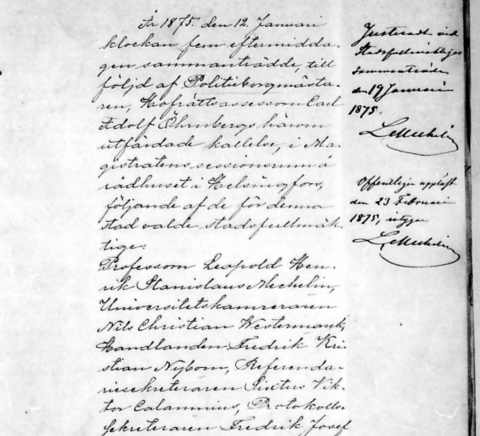 År 1875. den 12. Januari
klockan fem eftermidda-
gen sammanträdde, till
följd af Politieborgmästa-
ren, Hofrättsassessorn Carl
Adolf Öhrnbergs härom
utfärdade kallelse, i Ma-
gistratens sessionsrum å
rådhuset i Helsingfors,
följande af de för denna
stad valde stadsfullmäk-
tige:
Professorn Leopold Hen-
rik Stanislaus Mechelin,
Universitetskamreraren
Nils Christian Westermarck,
Handlanden Fredrik Kri-
stian Nybom, Referenda-
riesekreteraren Viktor
Calamnius, Protokolls-
sekreteraren Fredrik Josef
Justeradt vid
Stadsfullmäktiges
sammanträde
den 19 Januari
1875.
LMechelin
Offentligen uppläst
den 23 Februari
1875, intygar
LMechelin